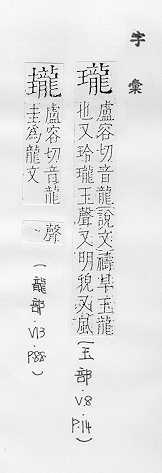 字彙
瓏 盧容切音龍說文禱旱玉龍
也又玲瓏玉聲又明貌又風
聲
(玉部.V8.P.14)
瓏 盧容切音龍
圭為龍文
(龍部.V13.P88)